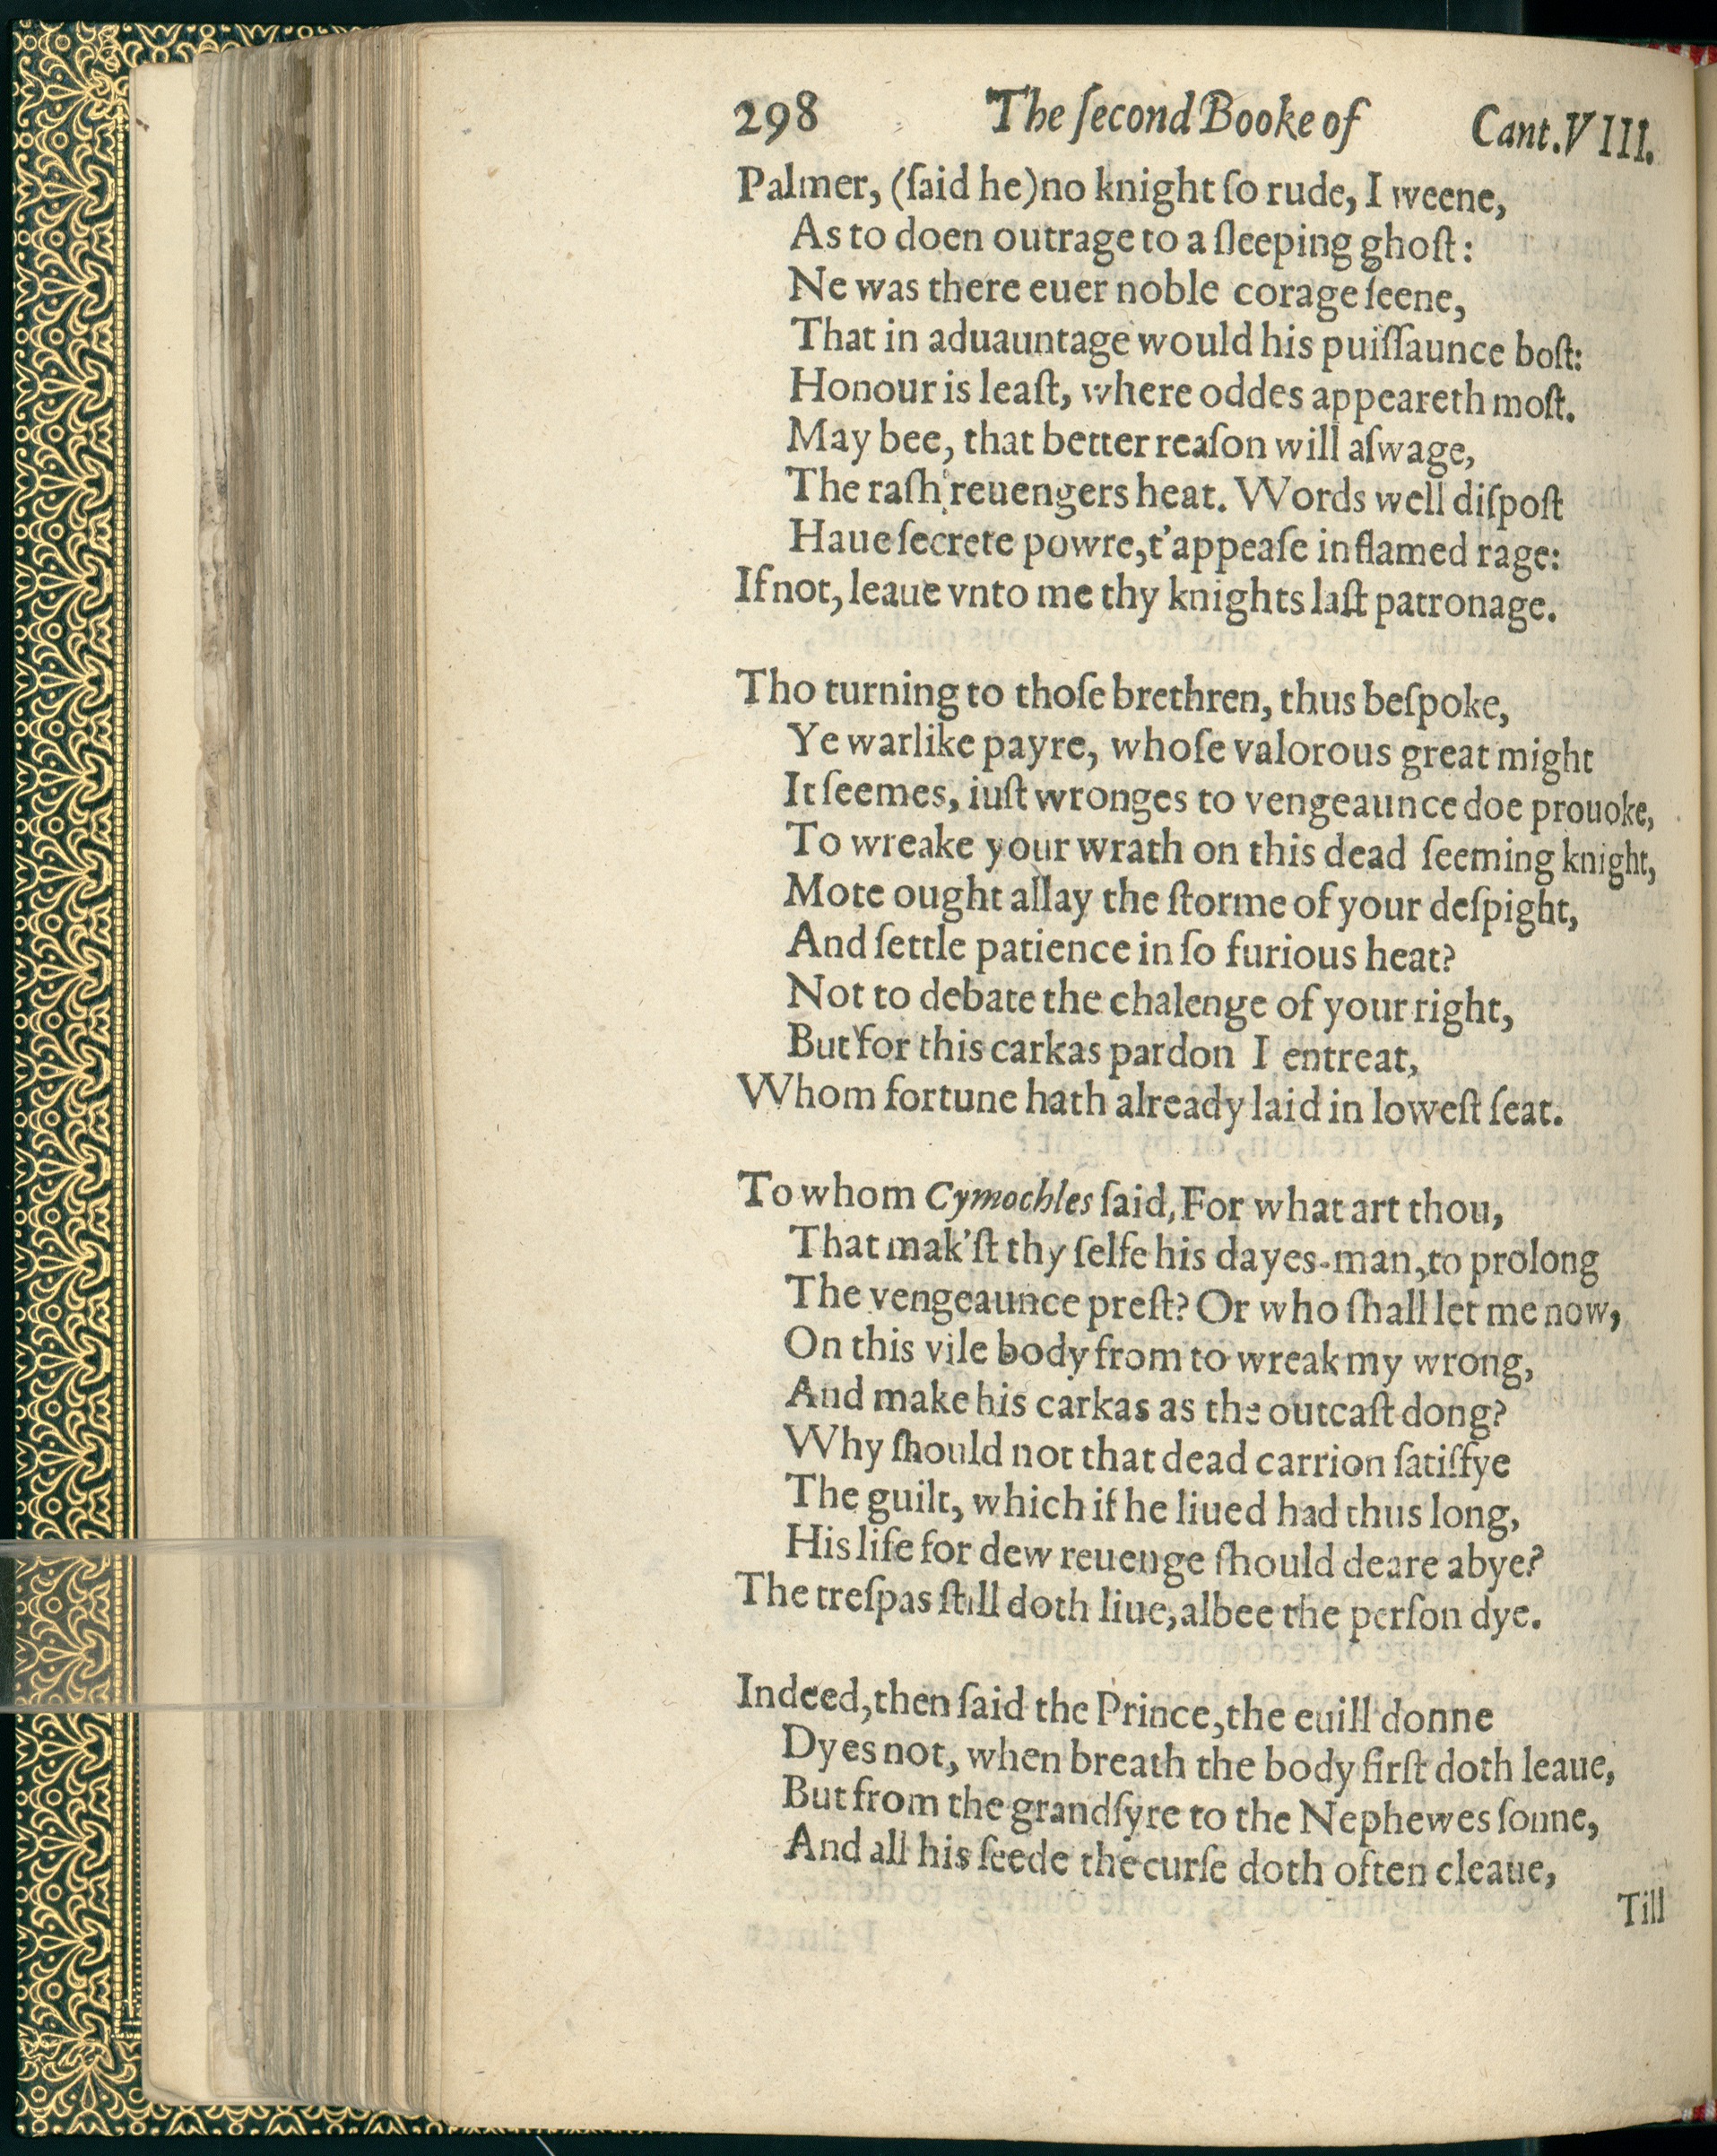 298 The ſecond Booke of Cant. VIII.
Palmer, (ſaid he) no knight ſo rude, I weene,
As to doen outrage to a ſleeping ghoſt:
Ne was there euer noble corage ſeene,
That in aduauntage would his puiſſaunce boſt:
Honour is leaſt, where oddes appeareth moſt.
May bee, that better reaſon will aſwage,
The raſh reuengers heat. Words well diſpoſt
Haue ſecrete powre, t'appeaſe inflamed rage:
If not, leaue vnto me thy knights laſt patronage.

Tho turning to thoſe brethren, thus beſpoke,
Ye warlike payre, whoſe valorous great might
It ſeemes, iuſt wronges to vengeaunce doe prouoke,
To wreake your wrath on this dead ſeeming knight,
Mote ought allay the ſtorme of your deſpight,
And ſettle patience in ſo furious heat?
Not to debate the chalenge of your right,
But for this carkas pardon I entreat,
Whom fortune hath already laid in loweſt ſeat.

To whom Cymochles ſaid, For what art thou,
That mak'ſt thy ſelfe his dayes-man, to prolong
The vengeaunce preſt? Or who ſhall let me now,
On this vile body from to wreak my wrong,
And make his carkas as the outcaſt dong?
Why ſhould not that dead carrion ſatiſfye
The guilt, which if he liued had thus long,
His life for dew reuenge ſhould deare abye?
The treſpas ſtill doth liue, albee the perſon dye.

Indeed, then ſaid the Prince, the euill donne
Dyes not, when breath the body firſt doth leaue,
But from the grandſyre to the Nephewes ſonne,
And all his ſeede the curſe doth often cleaue,
Till